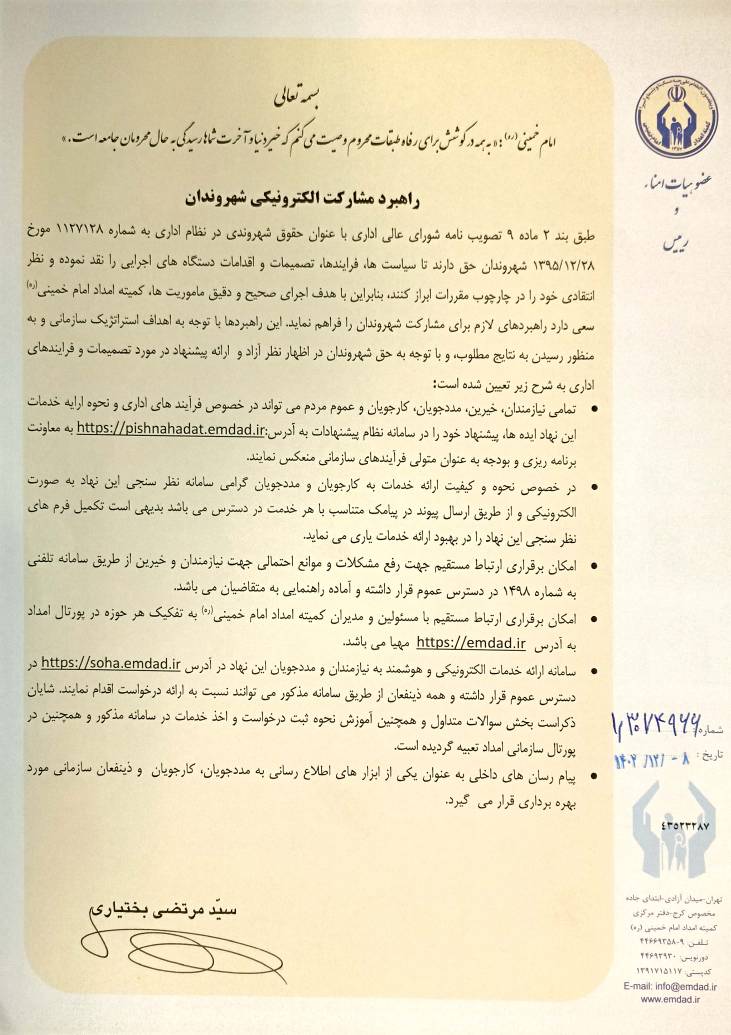 بسمه تعالی
امام خمینی (ره): «به همه در کوشش برای رفاه طبقات محروم وصیت می کنم که خیر دنیا و آخرت شماها رسیدگی به حال محرومان جامعه است.»
راهبرد مشارکت الکترونیکی شهروندان
طبق بند ۲ ماده ۹ تصویب نامه شورای عالی اداری با عنوان حقوق شهروندی در نظام اداری به شماره ۱۱۲۷۱۲۸ مورخ
۱۳۹۵/۱۲/۲۸ شهروندان حق دارند تا سیاست ها، فرایندها، تصمیمات و اقدامات دستگاه های اجرایی را نقد نموده و نظر
انتقادی خود را در چارچوب مقررات ابراز کنند، بنابراین با هدف اجرای صحیح و دقیق ماموریت ها، کمیته امداد امام خمینی(ره)
سعی دارد راهبردهای لازم برای مشارکت شهروندان را فراهم نماید. این راهبردها با توجه به اهداف استراتژیک سازمانی و به
منظور رسیدن به نتایج مطلوب، و با توجه به حق شهروندان در اظهار نظر آزاد و ارائه پیشنهاد در مورد تصمیمات و فرایندهای
اداری به شرح زیر تعیین شده است:
• تمامی نیازمندان، خیرین، مددجویان، کارجویان و عموم مردم می تواند در خصوص فرآیند های اداری و نحوه ارایه خدمات
این نهاد ایده ها، پیشنهاد خود را در سامانه نظام پیشنهادات به آدرس:https://pishnahadat.emdad.ir به معاونت
برنامه ریزی و بودجه به عنوان متولی فرآیندهای سازمانی منعکس نمایند.
• در خصوص نحوه و کیفیت ارائه خدمات به کارجویان و مددجویان گرامی سامانه نظر سنجی این نهاد به صورت
الکترونیکی و از طریق ارسال پیوند در پیامک متناسب با هر خدمت در دسترس می باشد بدیهی است تکمیل فرم های
نظر سنجی این نهاد را در بهبود ارائه خدمات یاری می نماید.
• امکان برقراری ارتباط مستقیم جهت رفع مشکلات و موانع احتمالی جهت نیازمندان و خیرین از طریق سامانه تلفنی
به شماره ۱۴۹۸ در دسترس عموم قرار داشته و آماده راهنمایی به متقاضیان می باشد.
• امکان برقراری ارتباط مستقیم با مسئولین و مدیران کمیته امداد امام خمینی(ره) به تفکیک هر حوزه در پورتال امداد
به آدرس https://emdad.ir مهیا می باشد.
• سامانه ارائه خدمات الکترونیکی و هوشمند به نیازمندان و مددجویان این نهاد در آدرس https://soha.emdad.ir در
دسترس عموم قرار داشته و همه ذینفعان از طریق سامانه مذکور می توانند نسبت به ارائه درخواست اقدام نمایند. شایان
ذکراست بخش سوالات متداول و همچنین آموزش نحوه ثبت درخواست و اخذ خدمات در سامانه مذکور و همچنین در
پورتال سازمانی امداد تعبیه گردیده است.
• پیام رسان های داخلی به عنوان یکی از ابزار های اطلاع رسانی به مددجویان، کارجویان و ذینفعان سازمانی مورد
بهره برداری قرار می گیرد.
سیّد مرتضی بختیاری
عضو هیات امناء
و
رییس
شماره
تاریخ:
۴۳۵۲۳۲۸۷
تهران-میدان آزادی-ابتدای جاده
مخصوص کرج-دفتر مرکزی
کمیته امداد امام خمینی (ره)
تلفن: ۹-۴۴۶۶۹۳۵۸
دورنویس: ۴۴۶۹۳۹۳۰
کدپستی: ۱۳۹۱۷۱۵۱۱۷
E-mail: info@emdad.ir
www.emdad.ir